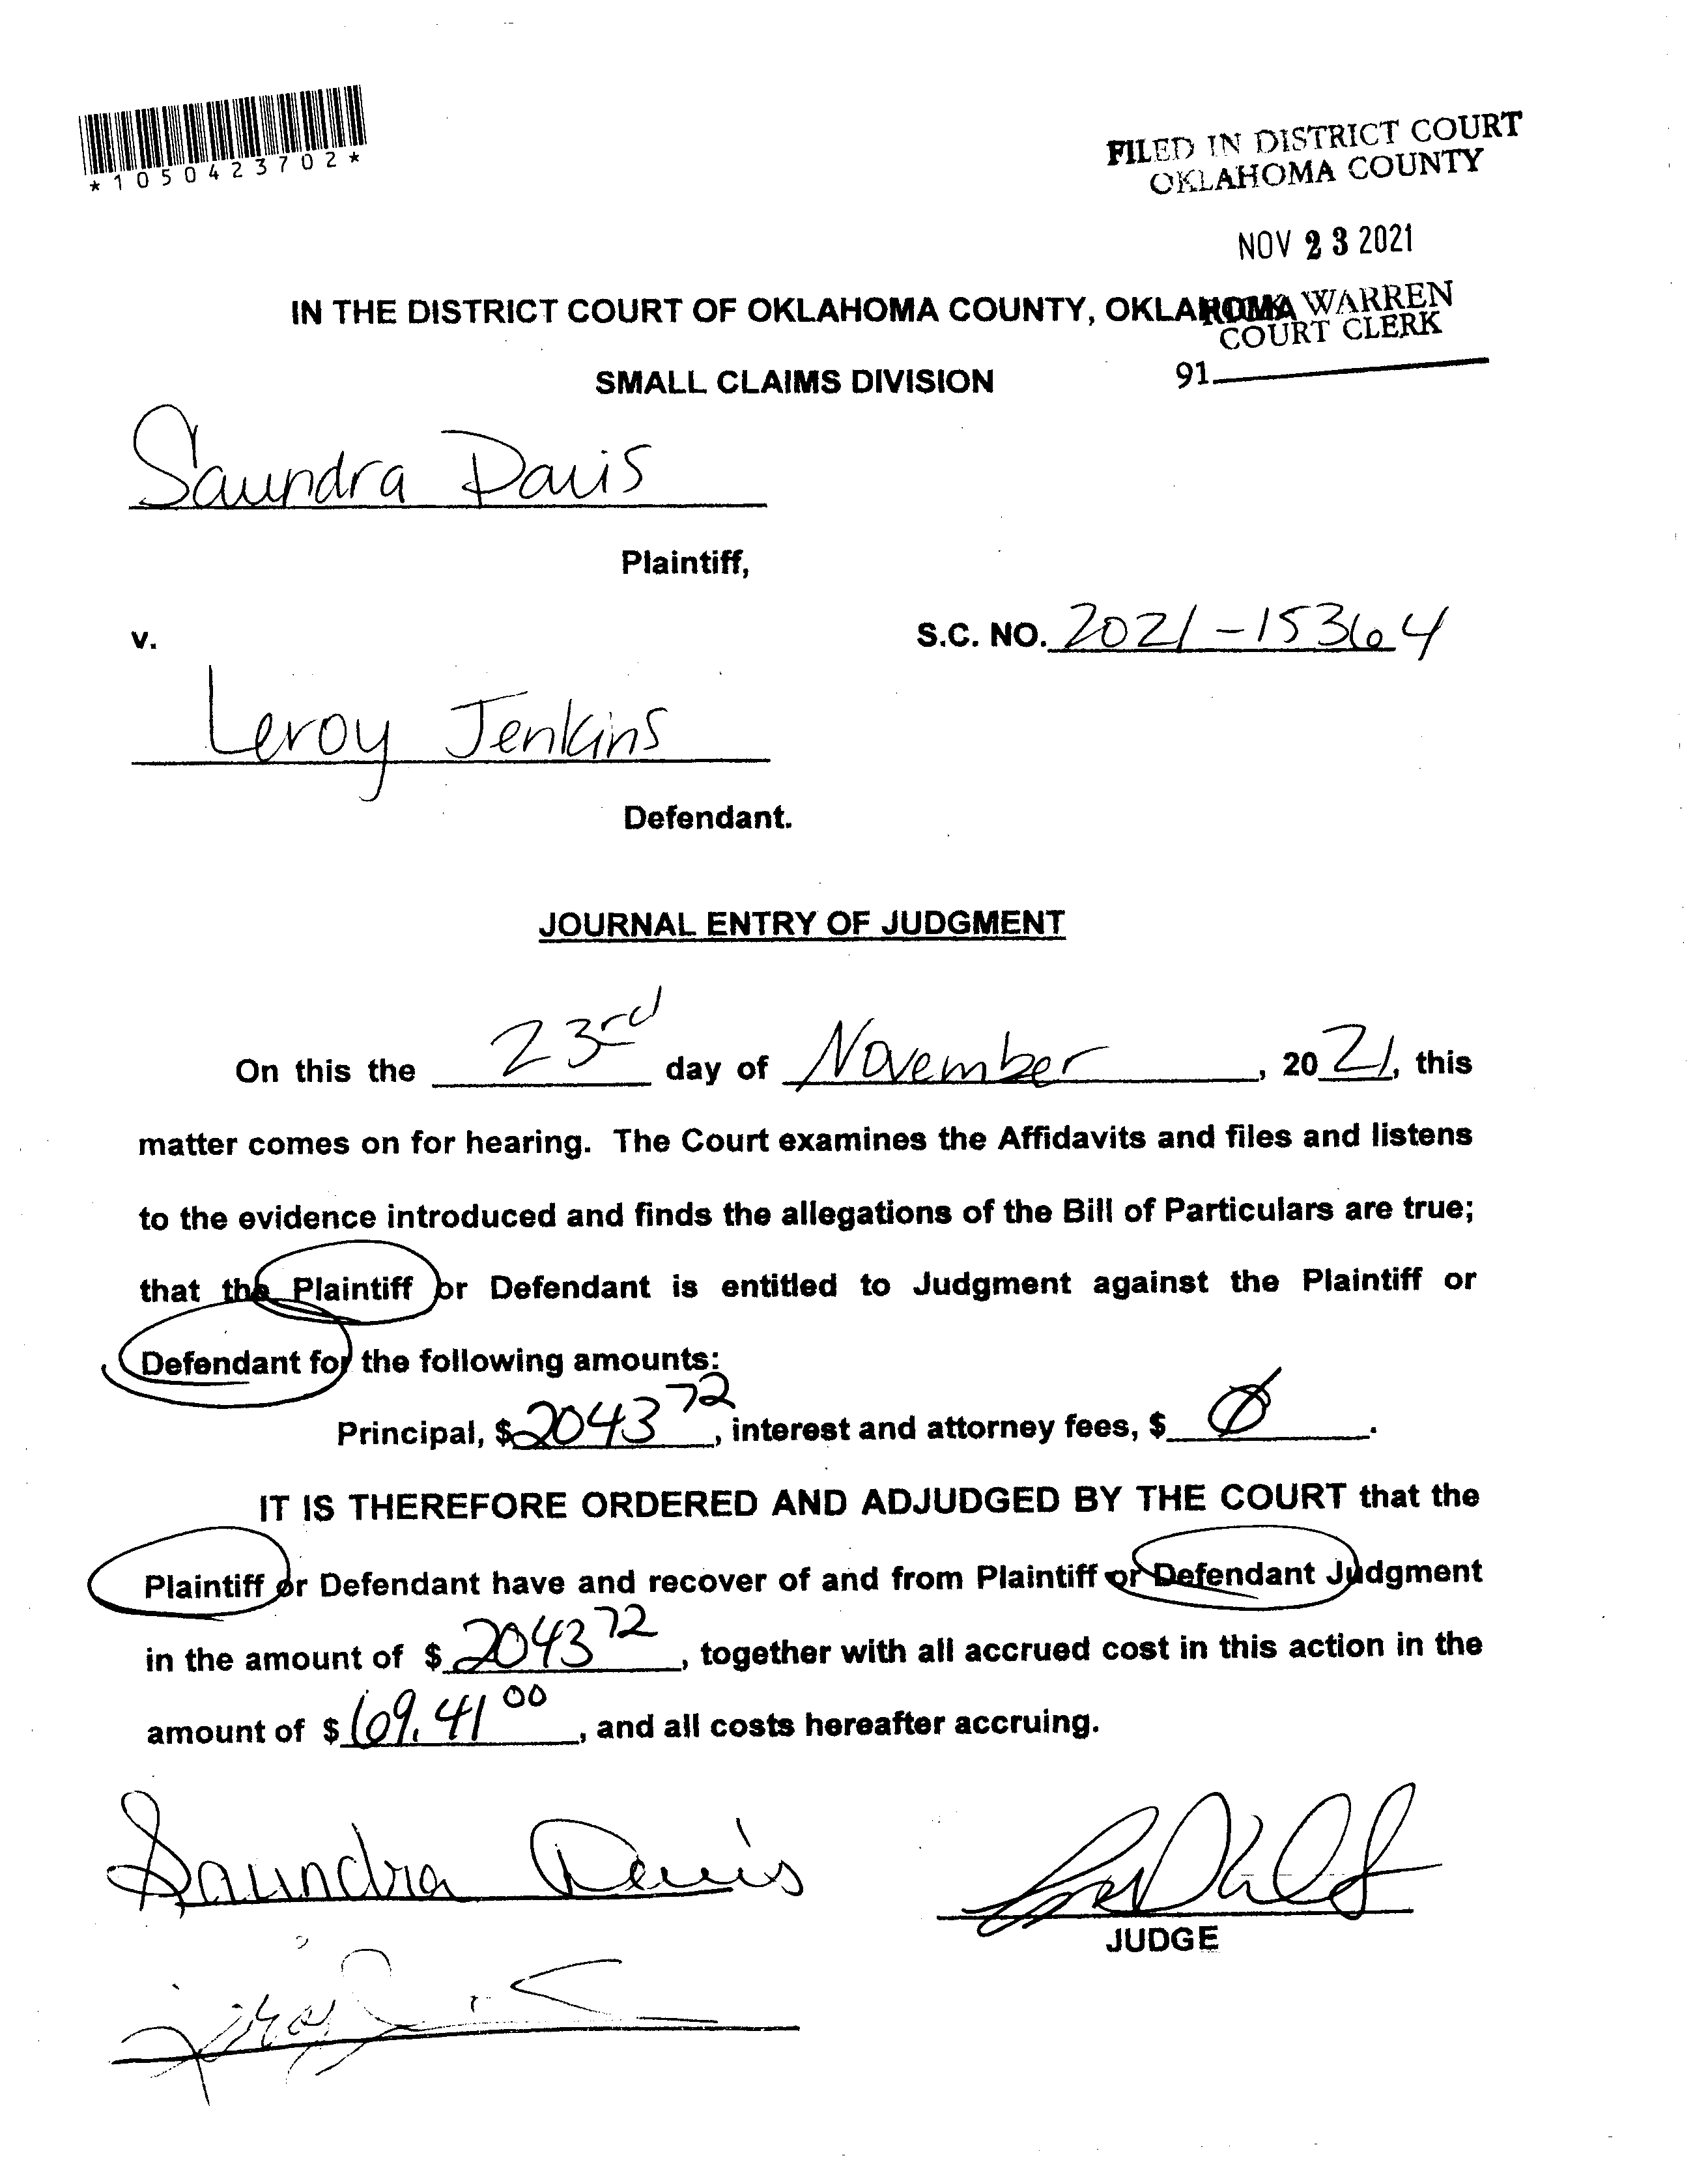 *1050423702*
FILED IN DISTRICT COURT
OKLAHOMA COUNTY
NOV 23 2021
WARREN
COURT CLERK
91
IN THE DISTRICT COURT OF OKLAHOMA COUNTY, OKLAHOMA
SMALL CLAIMS DIVISION
Saundra Davis
Plaintiff,
v.
S.C. NO. 2021-15364
Leroy Jenkins
Defendant.
JOURNAL ENTRY OF JUDGMENT
On this the 23rd day of November, 2021, this
matter comes on for hearing. The Court examines the Affidavits and files and listens
to the evidence introduced and finds the allegations of the Bill of Particulars are true;
that the Plaintiff or Defendant is entitled to Judgment against the Plaintiff or
Defendant for the following amounts:
Principal, $2043 72, interest and attorney fees, $ Ø.
IT IS THEREFORE ORDERED AND ADJUDGED BY THE COURT that the
Plaintiff or Defendant have and recover of and from Plaintiff or Defendant Judgment
in the amount of $ 2043 72, together with all accrued cost in this action in the
amount of $ 69.41 00, and all costs hereafter accruing.
Saundra Davis
JUDGE